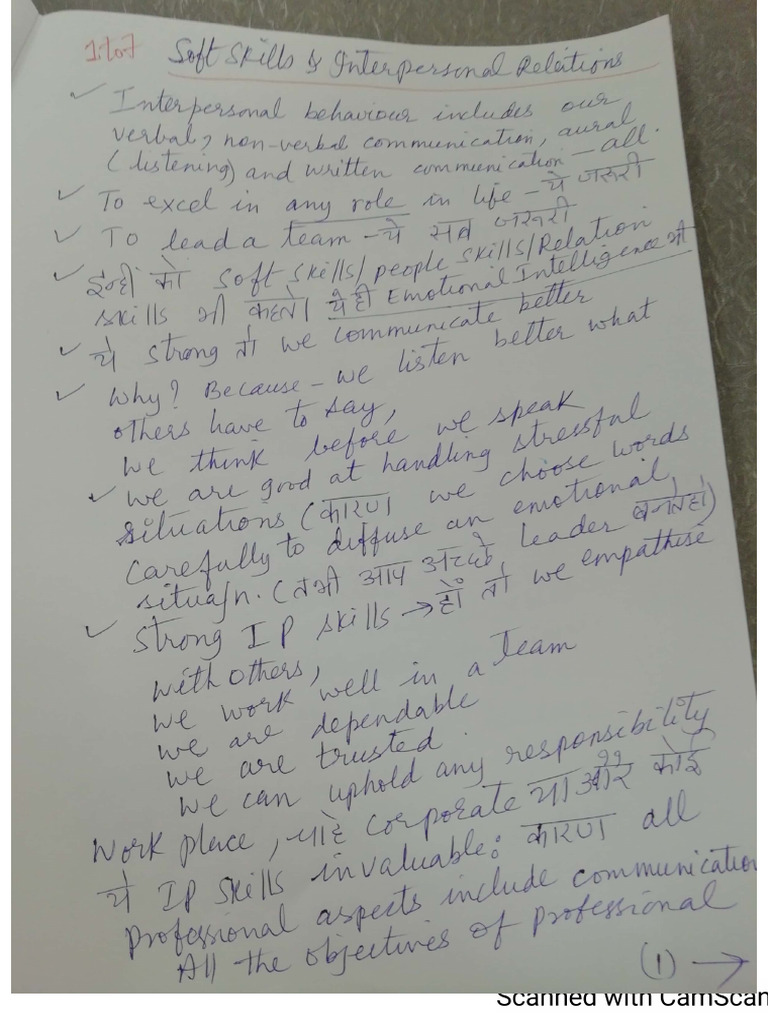 1 to 7 Soft Skills & Interpersonal Relations
Interpersonal behaviour includes our
verbal, non-verbal communication, aural
(listening) and written communication – all.
To excel in any role in life – ये जरूरी
To lead a team – ये सब जरूरी
इन्हीं को soft skills/people skills/Relation
skills भी कहते। ये ही Emotional Intelligence भी
ये strong तो we communicate better
Why? Because – we listen better what
others have to say,
we think before we speak
we are good at handling stressful
situations (कारण we choose words
carefully to diffuse an emotional
situa/n. (तभी आप अच्छे leader बनते हो)
strong IP skills → हों तो we empathise
with others,
we work well in a team
we are dependable
we are trusted.
we can uphold any responsibility
Work place, चाहे corporate या और कोई
ये IP skills invaluable: कारण all
Professional aspects include communication
All the objectives of professional
(1) →
Scanned with CamScan